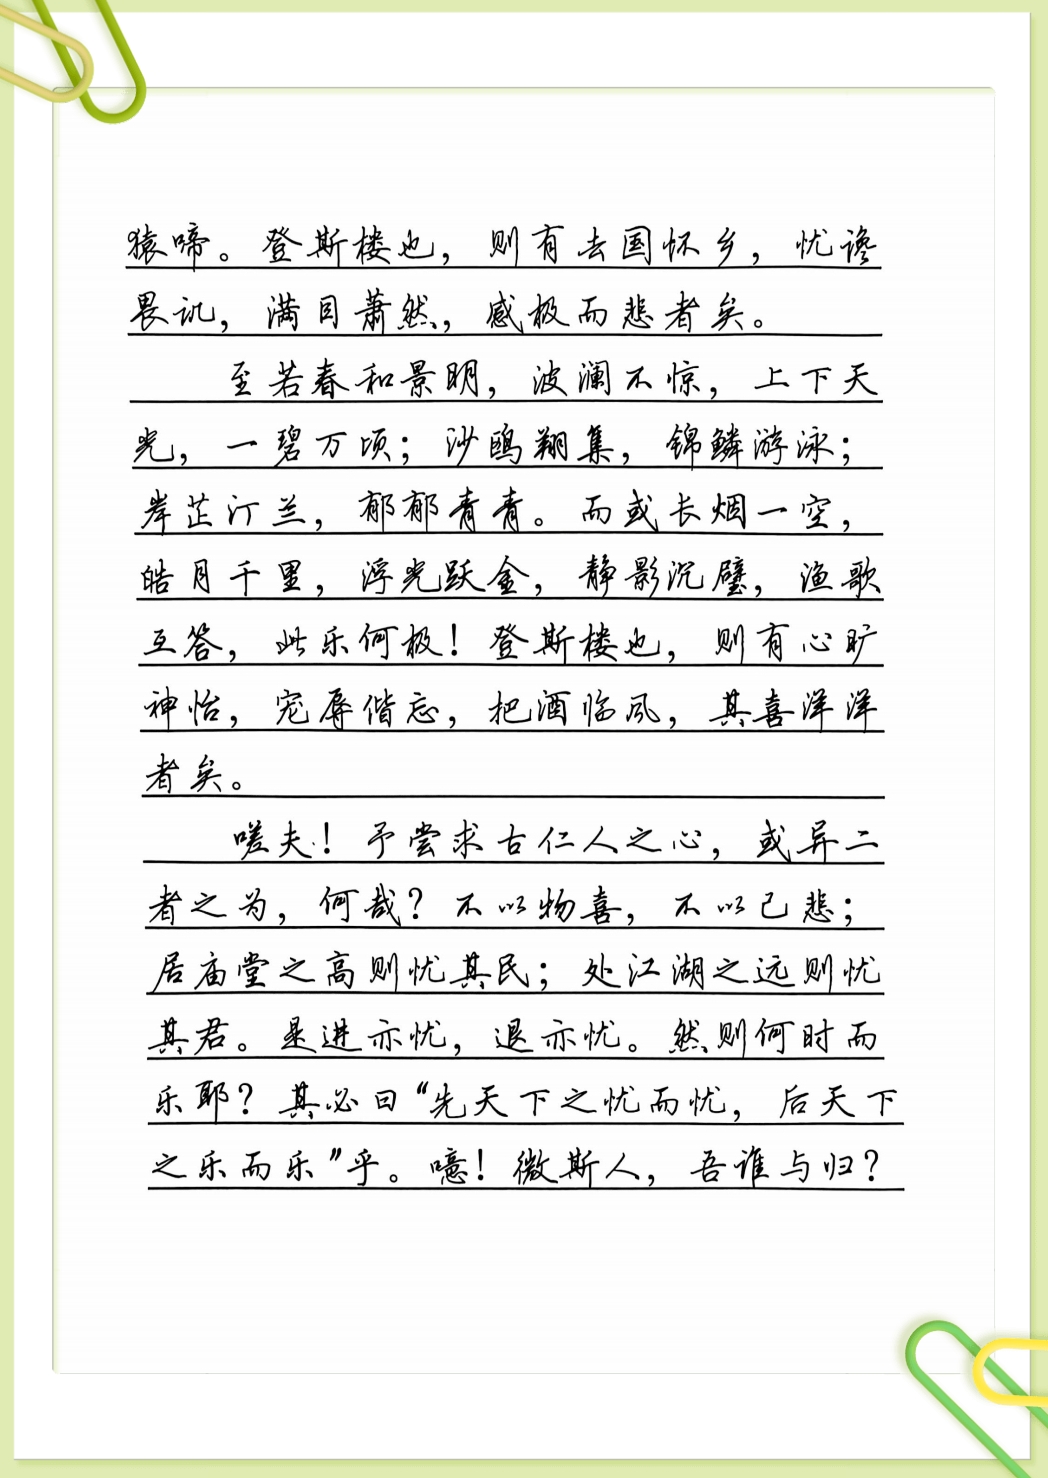 猿啼。登斯楼也，则有去国怀乡，忧谗
畏讥，满目萧然，感极而悲者矣。
至若春和景明，波澜不惊，上下天
光，一碧万顷；沙鸥翔集，锦鳞游泳；
岸芷汀兰，郁郁青青。而或长烟一空，
皓月千里，浮光跃金，静影沉璧，渔歌
互答，此乐何极！登斯楼也，则有心旷
神怡，宠辱偕忘，把酒临风，其喜洋洋
者矣。
嗟夫！予尝求古仁人之心，或异二
者之为，何哉？不以物喜，不以己悲；
居庙堂之高则忧其民；处江湖之远则忧
其君。是进亦忧，退亦忧。然则何时而
乐耶？其必曰“先天下之忧而忧，后天下
之乐而乐”乎。噫！微斯人，吾谁与归？